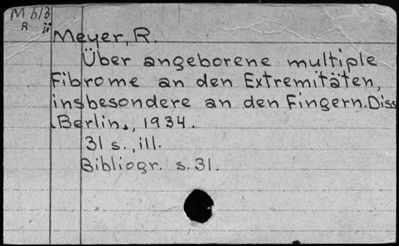 M 6/3
R ü
Meyer, R.
Über angeborene multiple
Fibrome an den Extremitäten,
insbesondere an den Fingern. Diss
Berlin., 1934.
31 s., ill.
Bibliogr. s. 31.